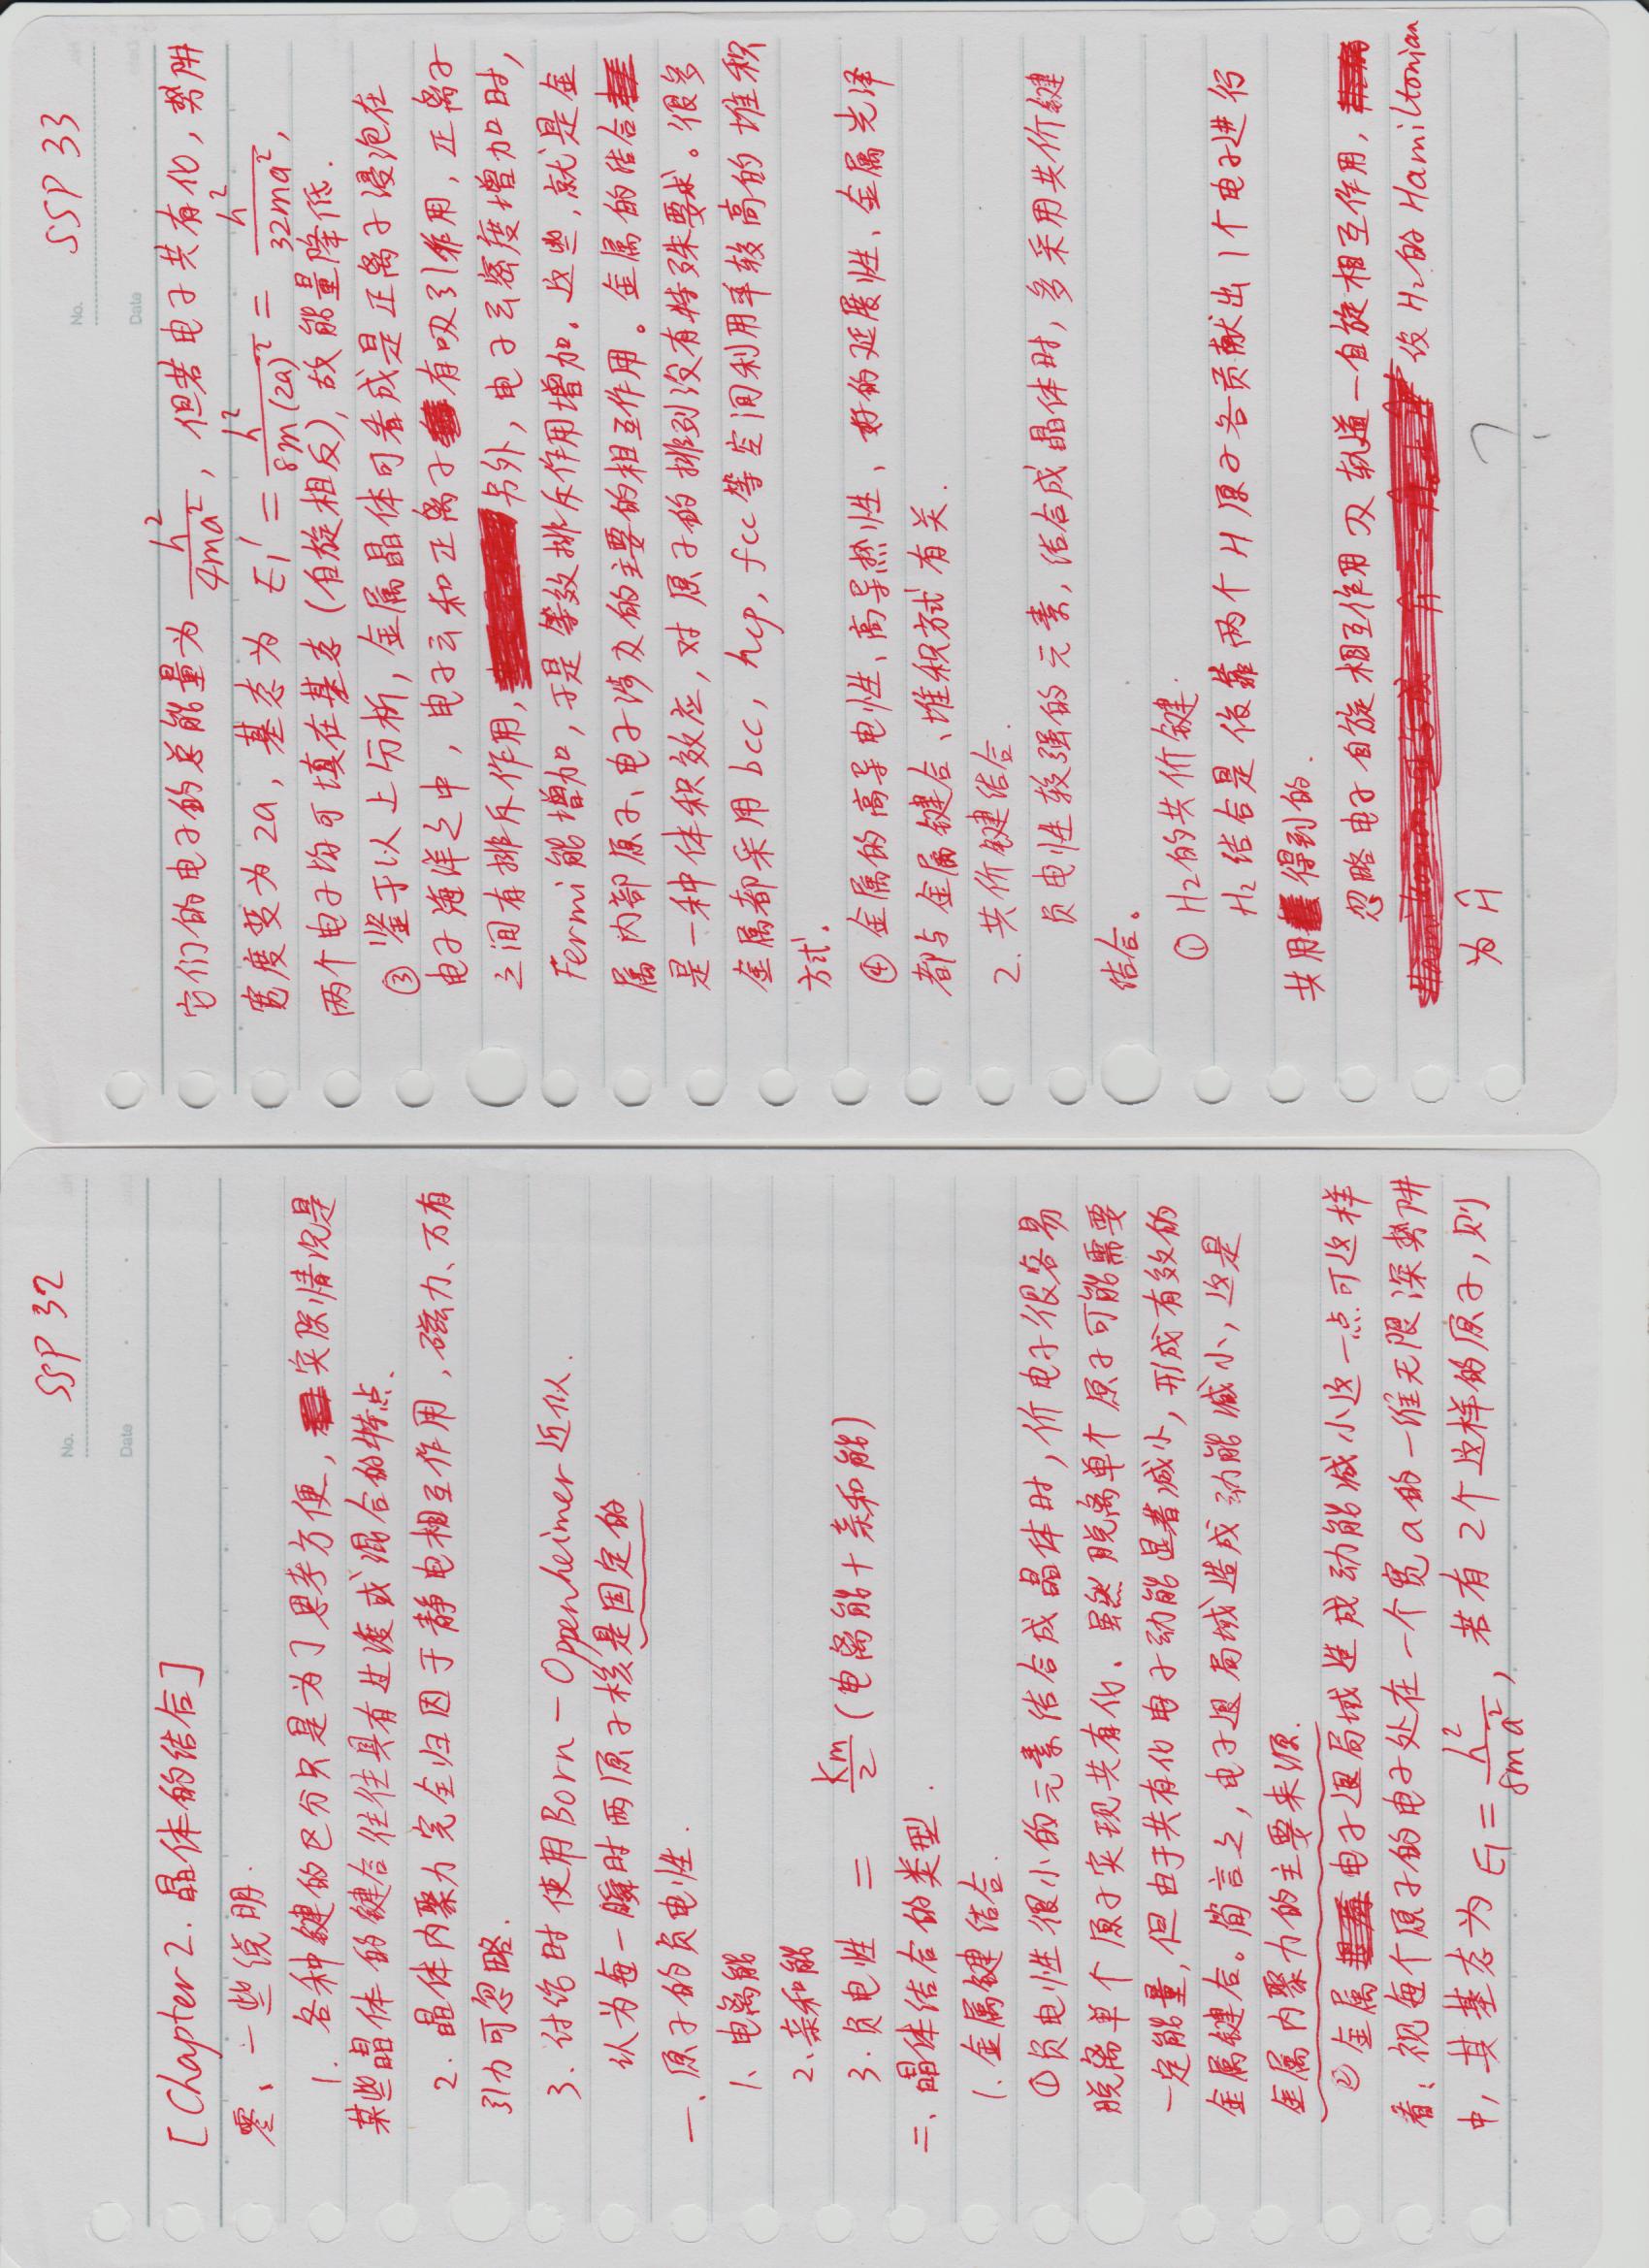 No. SSP 32
Date
[Chapter 2. 晶体的结合]
零、一些说明.
1. 各种键的区分只是为了思考方便, 实际情况是
某些晶体的键合往往具有过渡或混合的特点.
2. 晶体内聚力完全归因于静电相互作用, 磁力、万有
引力可忽略.
3. 讨论时使用Born-Oppenheimer近似.
认为每一瞬时两原子核是固定的
一、原子的负电性.
1、电离能
2、亲和能
3. 负电性 = Km/2 (电离能+亲和能)
二、晶体结合的类型.
1. 金属键结合.
①负电性很小的元素结合成晶体时, 价电子很容易
脱离单个原子实现共有化. 虽然脱离单个原子可能需要
一定能量, 但由于共有化电子动能显著减小, 形成有效的
金属键合。简言之, 电子退局域造成动能减小, 这是
金属内聚力的主要来源.
②金属电子退局域造成动能减小这一点可这样
看: 视每个原子的电子处在一个宽a的一维无限深势阱
中, 其基态为 E₁ = h²/8ma², 若有2个这样的原子, 则
No. SSP 33
Date
它们的电子的总能量为 h²/4ma², 但若电子共有化, 势阱
宽度变为2a, 基态为 E₁' = h²/8m(2a)² = h²/32ma²,
两个电子均可填在基态(自旋相反), 故能量降低.
③ 鉴于以上分析, 金属晶体可看成是正离子浸泡在
电子海洋之中, 电子云和正离子有吸引作用, 正离子
之间有排斥作用, 另外, 电子云密度增加时,
Fermi能增加, 于是等效排斥作用增加。这些, 就是金
属内部原子、电子涉及的主要的相互作用。金属的结合
是一种体积效应, 对原子的排列没有特殊要求。很多
金属都采用bcc, hcp, fcc等空间利用率较高的堆积
方式.
④ 金属的高导电性、高导热性、好的延展性、金属光泽
都与金属键合、堆积方式有关.
2. 共价键结合.
负电性较强的元素, 结合成晶体时, 多采用共价键
结合。
① H₂的共价键.
H₂结合是依靠两个H原子各贡献出1个电子进行
共用得到的.
忽略电子自旋相互作用及轨道-自旋相互作用,
设H₂的Hamiltonian
为 Ĥ
?